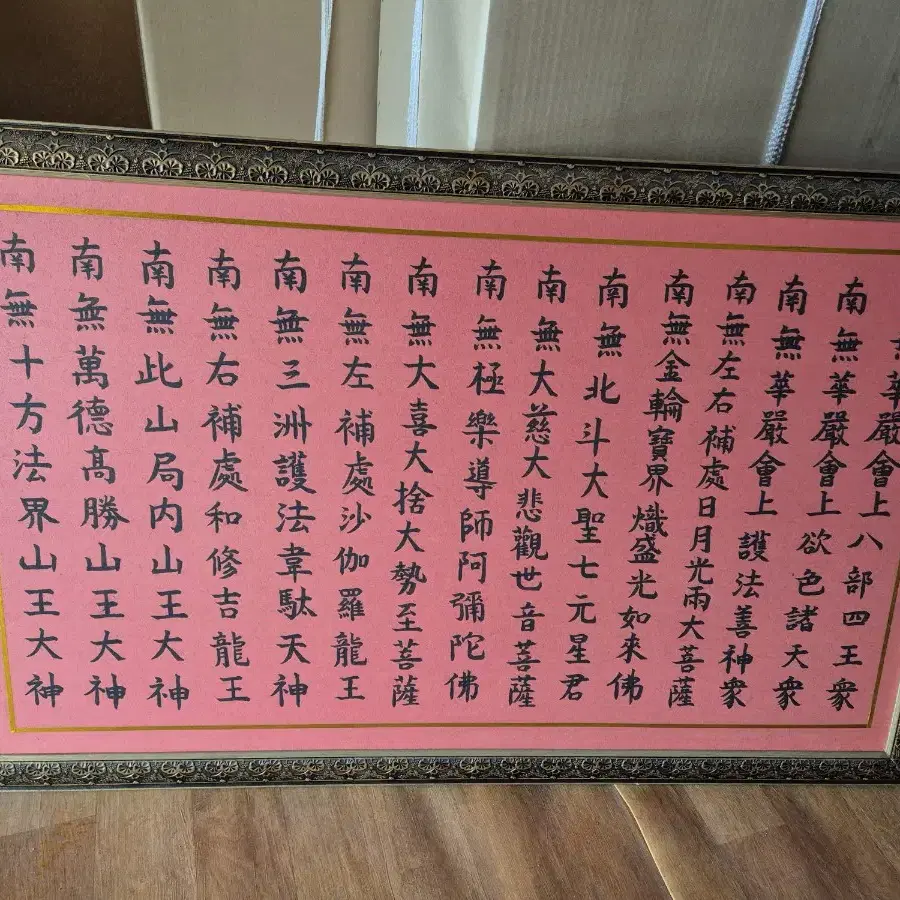 華嚴會上八部四王衆
南無華嚴會上欲色諸天衆
南無華嚴會上護法善神衆
南無左右補處日月光兩大菩薩
南無金輪寶界熾盛光如來佛
南無北斗大聖七元星君
南無大慈大悲觀世音菩薩
南無極樂導師阿彌陀佛
南無大喜大捨大勢至菩薩
南無左補處沙伽羅龍王
南無三洲護法韋駄天神
南無右補處和修吉龍王
南無此山局内山王大神
南無萬德高勝山王大神
南無十方法界山王大神